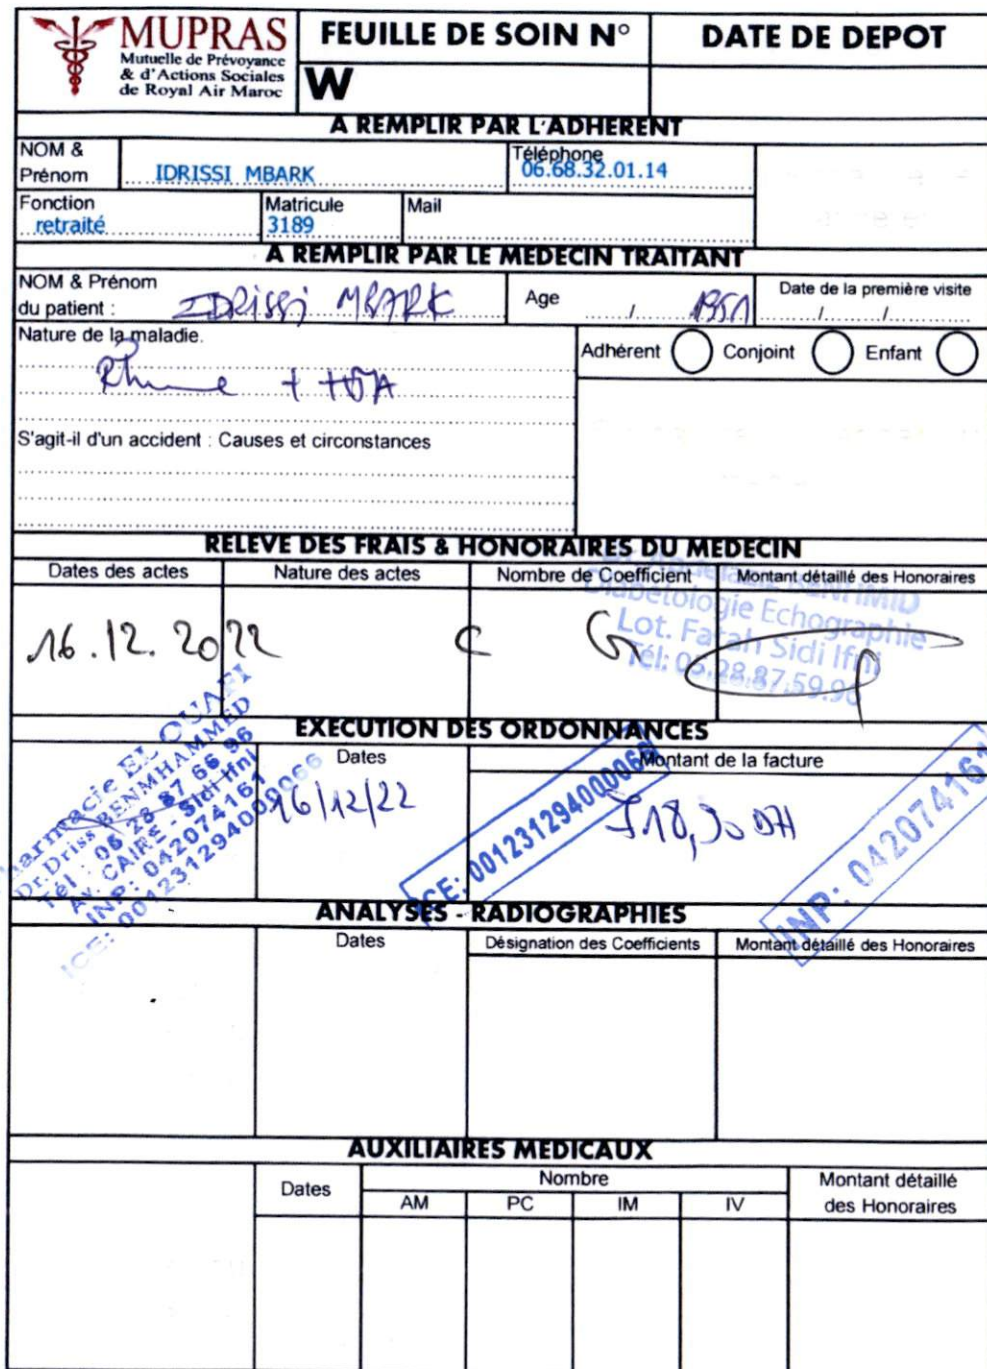 MUPRAS
Mutuelle de Prévoyance
& d'Actions Sociales
de Royal Air Maroc
FEUILLE DE SOIN N°
W
DATE DE DEPOT
A REMPLIR PAR L'ADHERENT
NOM &
Prénom
IDRISSI MBARK
Téléphone
06.68.32.01.14
Fonction
retraité
Matricule
3189
Mail
A REMPLIR PAR LE MEDECIN TRAITANT
NOM & Prénom
du patient : IDRISSI MBARK
Age 1951
Date de la première visite
Nature de la maladie.
Rhume + HTA
Adhérent Conjoint Enfant
S'agit-il d'un accident : Causes et circonstances
RELEVE DES FRAIS & HONORAIRES DU MEDECIN
Dates des actes Nature des actes Nombre de Coefficient Montant détaillé des Honoraires
16.12.2022 C G
Diabétologie Echographie
Lot. Fatah Sidi Ifni
Tél: 05.28.87.59.90
EXECUTION DES ORDONNANCES
Pharmacie EL OUAFI
Dr. Driss BENMHAMMED
Tél : 05 28 87 66 96
Av. CAIRE - Sidi Ifni
INP: 042074161
ICE: 001231294000066
Dates
16/12/22
Montant de la facture
518,30 DH
ICE: 001231294000066
INP: 042074161
ANALYSES - RADIOGRAPHIES
Dates Désignation des Coefficients Montant détaillé des Honoraires
AUXILIAIRES MEDICAUX
Dates
Nombre
AM PC IM IV
Montant détaillé
des Honoraires